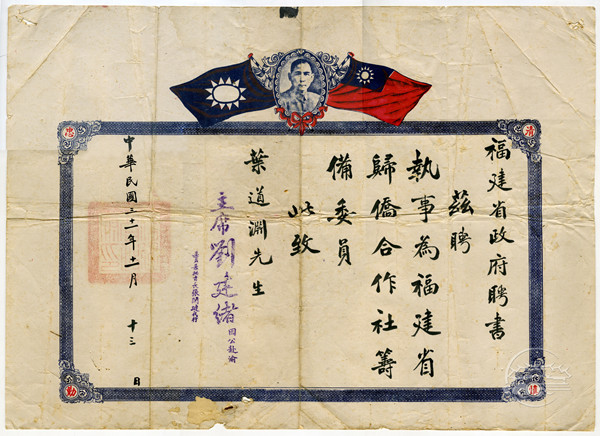 清
忠
福建省政府聘書
茲聘
執事為福建省
歸僑合作社籌
備委員
此致
葉道淵先生
主席劉建緒因公赴渝
中華民國三十一年十一月十三日
慎
勤